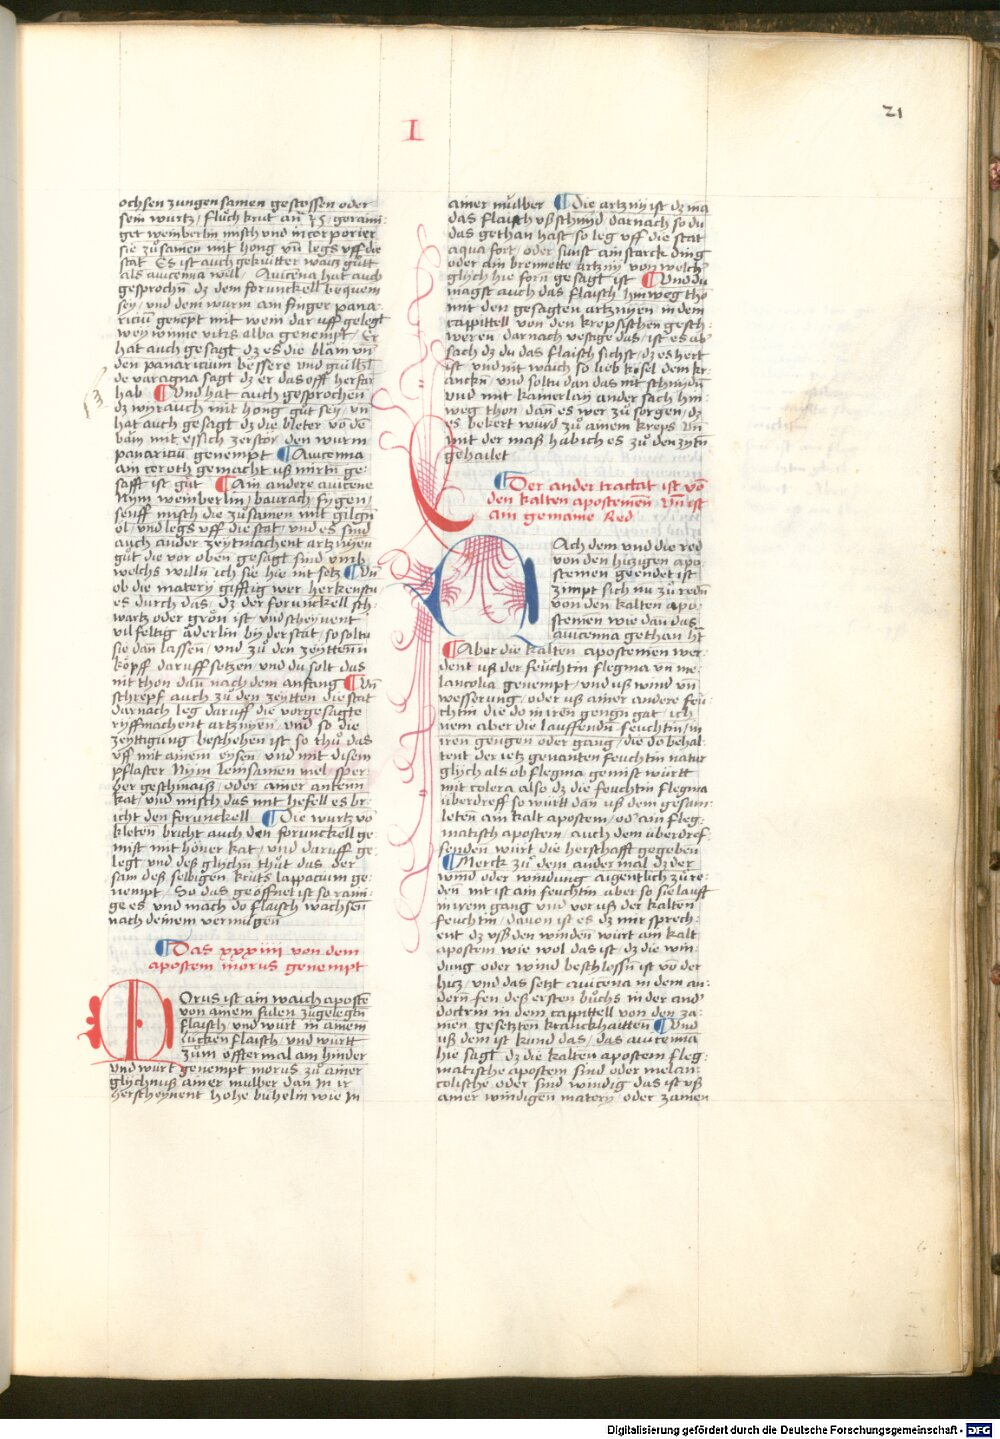 I
21
ochsen zungen samen gestossen oder
sein wurtz / fluch krut an ʒ5 / gerami:
get weinberlin misch vnd incorporier
sie zů samen mit hong vn̄ legs vff die
stat Es ist auch gekuͤtter waitz gůtt
als auicenna will / Auicena hat auch
gesprochn̄ dz dem forunckell bequem
sey / vnd dem wurm am finger pana:
ricium genept mit wein dar vff gelegt
wey winne vitis alba genempt / Er
hat auch gesagt dz es die blam vn̄
den panaricium bessere vnd
de varagna sagt dz er das offt herfar
hab ¶ Vnd hat auch gesprochen
dz wyrauch mit hong gůt sey / vn̄
hat auch gesagt dz die bleter vo de
bam mit essich zerstor den wurm
panariciu genempt ¶ Auicenna
ain ceroth gemacht uß mirtn̄ ge:
safft ist gůt ¶ Ain andere auicene
Nym weinberlin / baurach fygen /
senff misch die zůsamen mit gilgn̄
ol / vnd legs vff die stat / vnd es sind
auch ander zeytmachent artznyen
gůt die vor oben gesagt sind vmb
welchs willn̄ ich sie hie nit setz ¶ Vn̄
ob die matery gifftig wer herkenstu
es durch das / dz der forunckell sch:
wartz oder groͤn ist vnd scheynent
vil feltig aderlin by der stat / so soltu
sie dan lassen / vnd zů den zeyttenn
koͤpff daruff setzen / vnd du solt das
nit thon dan̄ nach dem anfang ¶ Vn̄
schrepf auch zů den zeytten die stat
darnach leg daruff die vorgesagte
ryffmachent artznyen / vnd so die
zeyttigung beschehen ist so thů das
vff mit ainem eysen / vnd mit disem
pflaster Nym leinsamen mel sper:
ber geschmaiß / oder ainer antenn
kat / vnd misch das mit hefell es br:
icht den forunckell ¶ Die wurtz vo
kleten bricht auch den forunckell ge
mist mit hoͤner kat / vnd daruff ge:
legt vnd deß glychn̄ thůt das der
sam deß selbigen kruts lappacium ge:
nempt / So das geoffnet ist so raini:
ge es vnd mach do flaisch wachsen̄
nach deinem vermugen
¶ Das xxxiiii von dem
apostem morus genempt
MOrus ist ain waich aposte
von ainem fulen zůgelegtn̄
flaisch / vnd wurt in ainem
lucken flaisch / vnd wurtt
zům offtermal am hinder
vnd wurt genempt morus zů ainer
glychnuß ainer mulber dan in ir
herscheynent hohe buhelin wie in
ainer muͤlber ¶ Die artzny ist dz ma
das flaisch vß schnid darnach so du
das gethan hast so leg vff die stat
aqua fort / oder sunst ain starck ding
oder ain brennette artzny von welch
glych hie forn gesagt ist ¶ Vnd du
magst auch das flaisch hinweg thō
mit den gesagten artznyen in dem
cappittell von den krepsischen gesch:
weren darnach vestige das / ist es ab
sach dz du das flaisch sichst / dz es hert
ist vnd nit waich so lieb kosel dem kr:
anckn̄ / vnd soltu dan das nit schnidn̄
vnd mit kainerlay ander sach hin:
weg thon / dan̄ es wer zů sorgen / dz
es bekert wurd zů ainem kreps vn̄
mit der maß hab ich es zů den zytn̄
gehailet
¶ Der ander tractat ist vō
den kalten apostemen̄ vn̄ ist
ain gemaine Red
NAch dem vnd die red
von den hitzigen apo
stemen geendet ist
zimpt sich nu zů redn̄
von den kalten apo:
stemen wie dan das
auicenna gethan ht̄
¶ Aber die kalten apostemen wer:
dent uß der feuchtin flegma vn̄ me:
lancolia genempt / vnd uß wind vn̄
wesserung / oder uß ainer andere feu:
chtin die do in iren gengn̄ gat / ich
nym aber die lauffendn̄ feuchtin / in
iren gengen oder gang / die do behal:
tent der ietz genanten feuchtin natur
glych als ob flegma gemist wurtt
mit colera also dz die feuchtin flegma
uͤberdreff so wurtt dan uß dem gesam:
leten ain kalt apostem / od' ain fleg:
matisch apostem / auch dem uͤberdref:
fenden wurt die herschafft gegeben
¶ Merck zů dem ander mal dz der
wind oder windung aigentlich zů re:
den nit ist ain feuchtin aber so sie laufft
in irem gang vnd vor uß der kalten
feuchtin / davon ist es dz mir sprech:
ent dz vß den winden wurt ain kalt
apostem wie wol das ist / dz die win:
dung oder wind beschlossn̄ ist vo der
hitz / vnd das setzt auicena in dem an:
dern fen deß ersten bůchs in der and'
doctrin in dem cappittell von den za:
men gesetzten kranckhaitten ¶ Vnd
uß dem ist kund das / das auicenna
hie sagt dz die kalten apostem fleg:
matische apostem sind oder melan:
colische oder sind windig das ist uß
ainer windigen matery / oder zamen
Digitalisierung gefördert durch die Deutsche Forschungsgemeinschaft - DFG